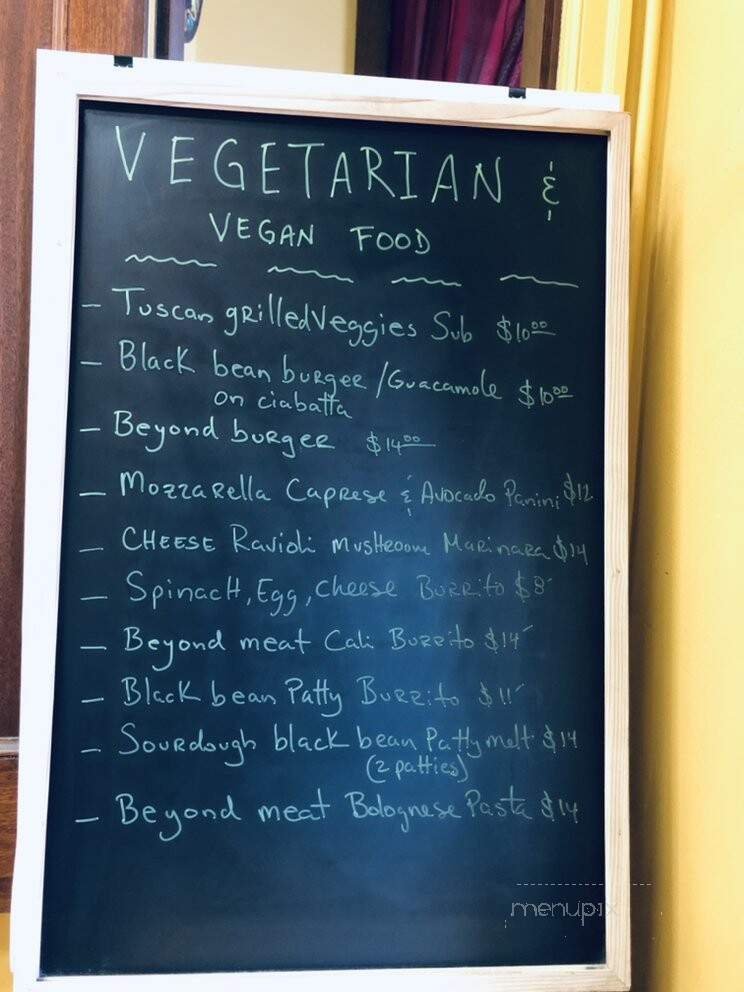 VEGETARIAN &
VEGAN FOOD
- Tuscan grilled Veggies Sub $10.00
- Black bean burger / Guacamole $10.00
on ciabatta
- Beyond burger $14.00
- Mozzarella Caprese & Avocado Panini $12
- CHEESE Ravioli Mushroom Marinara $14
- Spinach, Egg, cheese Burrito $8
- Beyond meat Cali Burrito $14
- Black bean Patty Burrito $11
- Sourdough black bean Patty melt $14
(2 patties)
- Beyond meat Bolognese Pasta $14
menupix